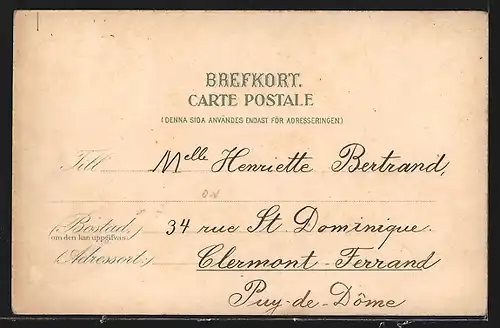 BREFKORT.
CARTE POSTALE
(DENNA SIDA ANVÄNDES ENDAST FÖR ADRESSERINGEN)
Till Melle Henriette Bertrand,
(Bostad,) 34 rue St. Dominique.
om den kan uppgifvas
(Adressort:) Clermont-Ferrand
Puy-de-Dôme